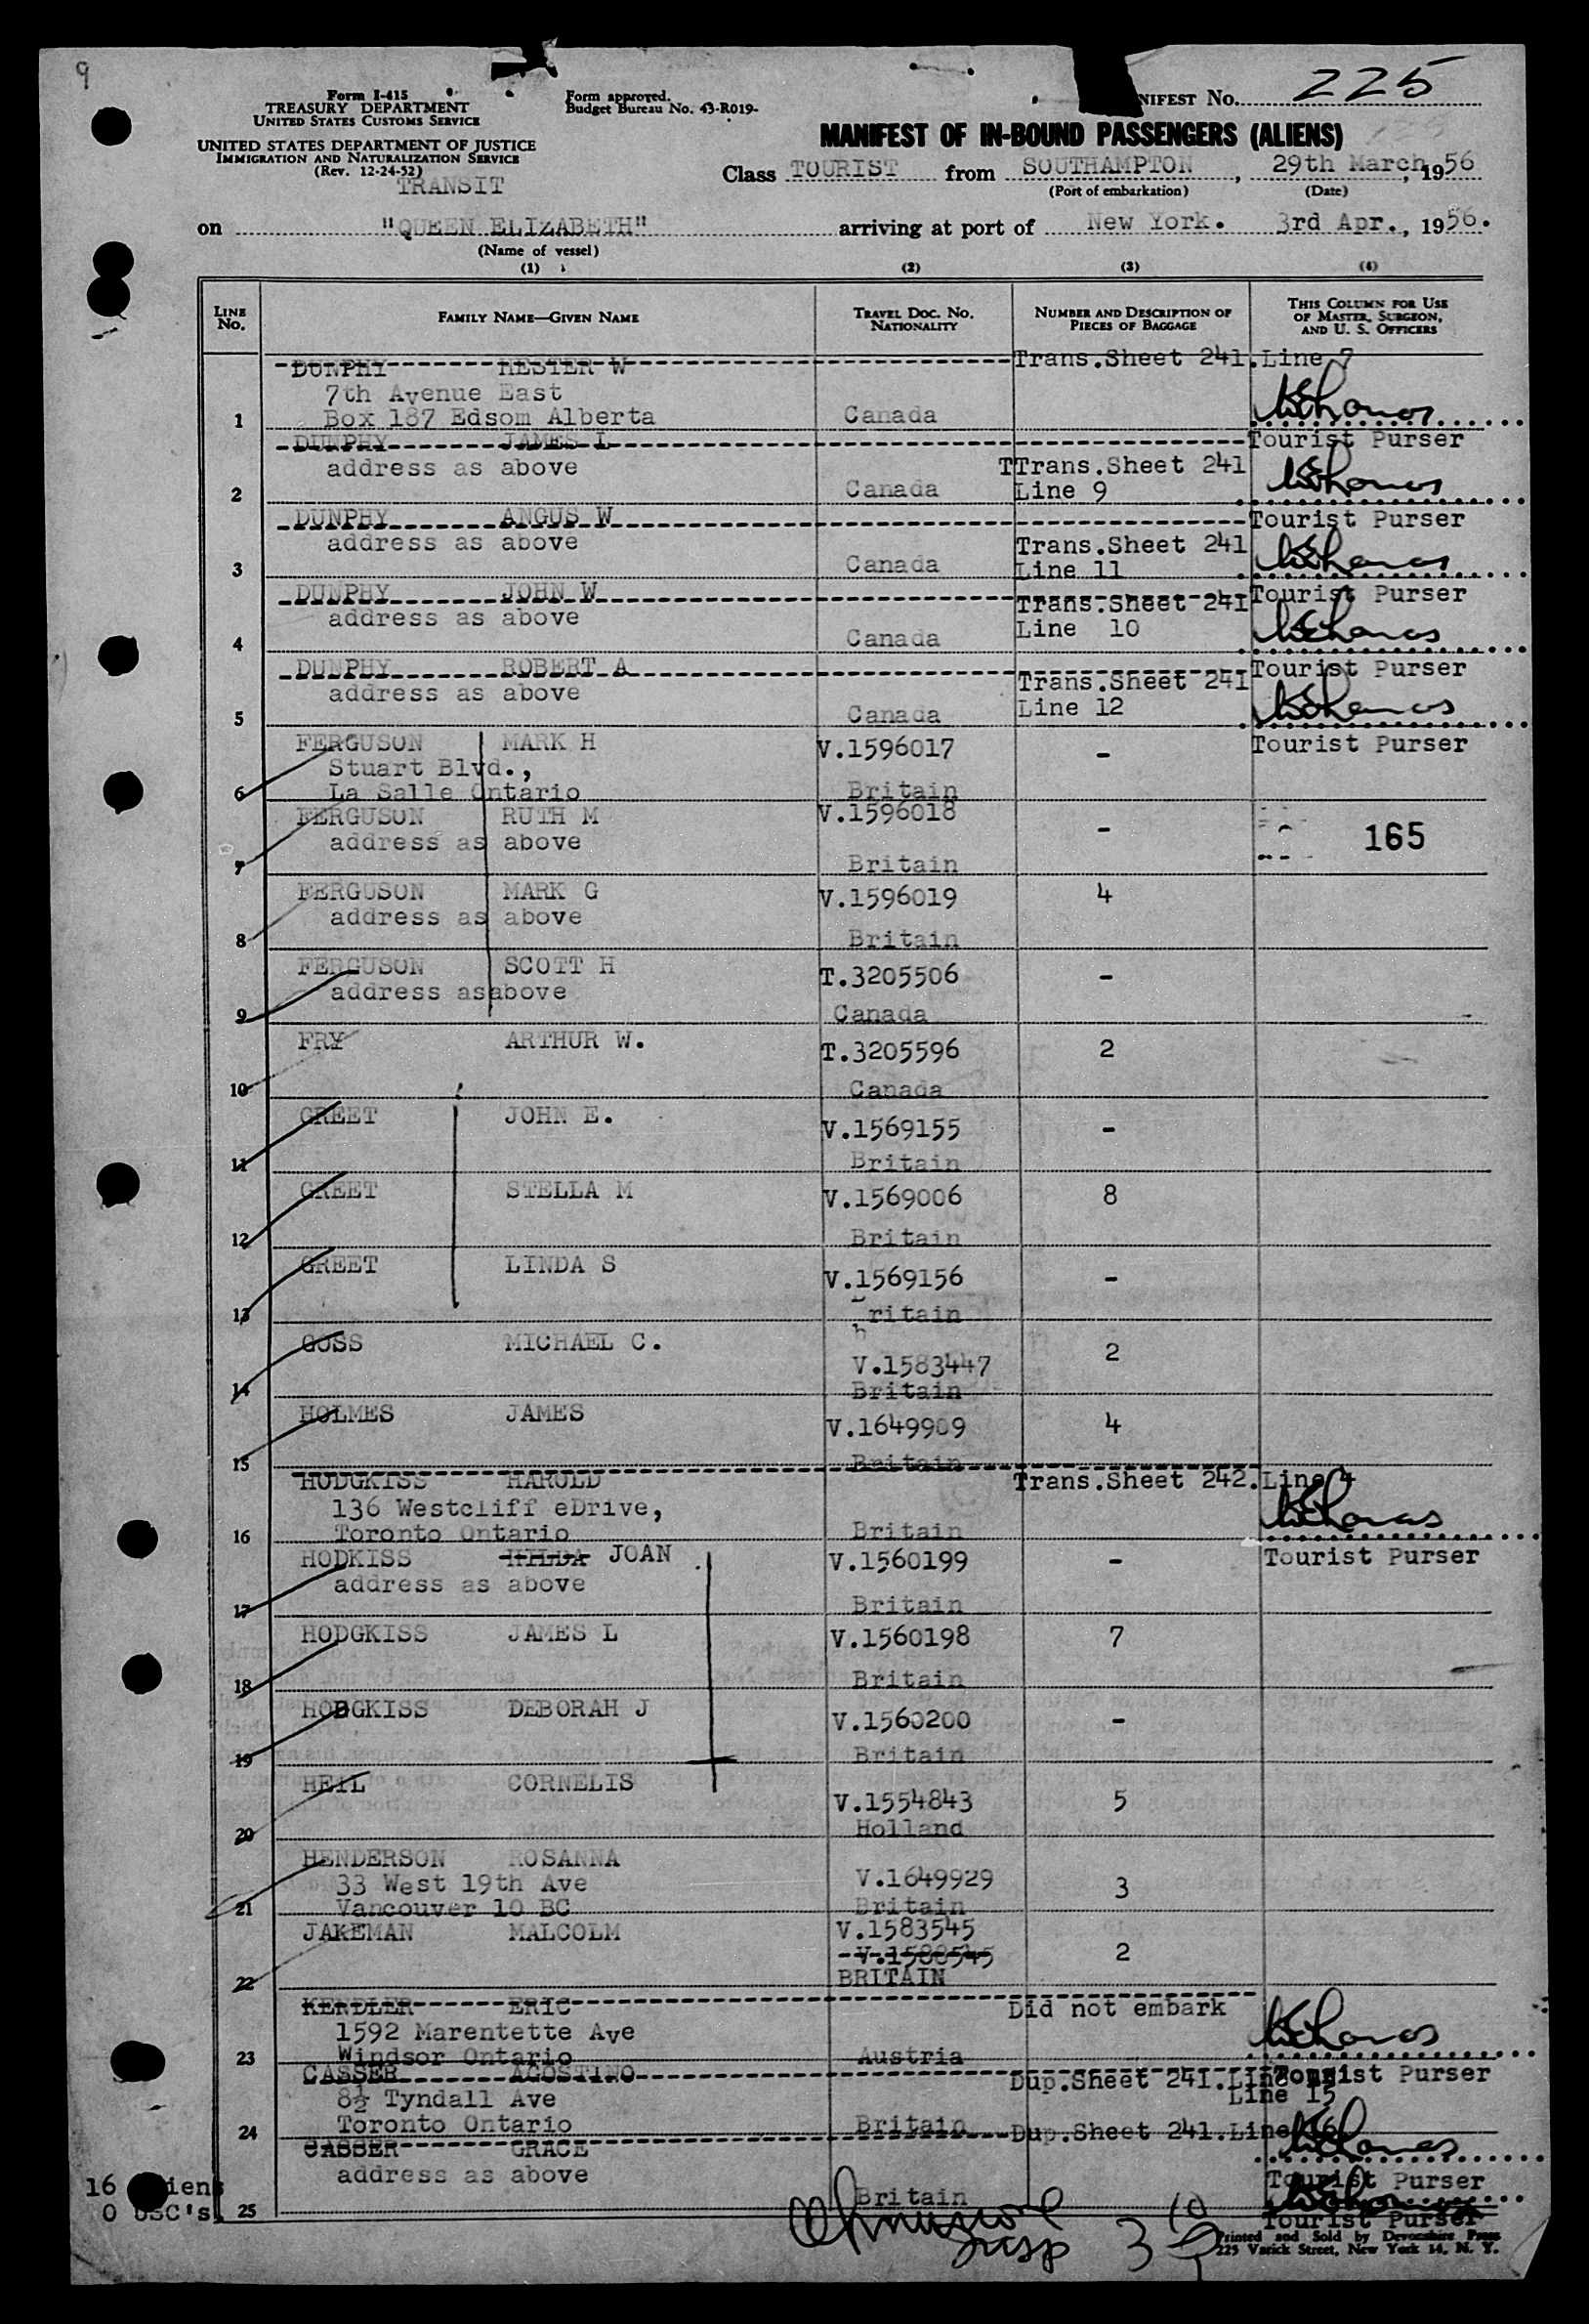 9
Form I-415
TREASURY DEPARTMENT
UNITED STATES CUSTOMS SERVICE
Form approved.
Budget Bureau No. 43-R019-
NIFEST No. 225
UNITED STATES DEPARTMENT OF JUSTICE
IMMIGRATION AND NATURALIZATION SERVICE
(Rev. 12-24-52)
TRANSIT
MANIFEST OF IN-BOUND PASSENGERS (ALIENS)
Class TOURIST from SOUTHAMPTON, 29th March, 1956
(Port of embarkation) (Date)
on "QUEEN ELIZABETH" arriving at port of New York. 3rd Apr., 1956.
(Name of vessel)
(1) (2) (3) (4)
LINE No. FAMILY NAME—GIVEN NAME TRAVEL DOC. NO. NATIONALITY NUMBER AND DESCRIPTION OF PIECES OF BAGGAGE THIS COLUMN FOR USE OF MASTER, SURGEON, AND U. S. OFFICERS
DUNPHY HESTER W Trans.Sheet 241.Line 7
7th Avenue East
1 Box 187 Edsom Alberta Canada
DUNPHY JAMES L Tourist Purser
address as above TTrans.Sheet 241
2 Canada Line 9
DUNPHY ANGUS W Tourist Purser
address as above Trans.Sheet 241
3 Canada Line 11
DUNPHY JOHN W Trans.Sheet 241 Tourist Purser
address as above Line 10
4 Canada
DUNPHY ROBERT A Trans.Sheet 241 Tourist Purser
address as above Line 12
5 Canada
FERGUSON MARK H V.1596017 - Tourist Purser
Stuart Blvd.,
6 La Salle Ontario Britain
FERGUSON RUTH M V.1596018 -
address as above 165
7 Britain
FERGUSON MARK G V.1596019 4
address as above
8 Britain
FERGUSON SCOTT H T.3205506 -
address asabove
9 Canada
FRY ARTHUR W. T.3205596 2
10 Canada
GREET JOHN E. V.1569155 -
11 Britain
GREET STELLA M V.1569006 8
12 Britain
GREET LINDA S V.1569156 -
13 ritain
GOSS MICHAEL C. V.1583447 2
14 Britain
HOLMES JAMES V.1649909 4
15 Britain
HODGKISS HAROLD Trans.Sheet 242.Line 4
136 Westcliff eDrive,
16 Toronto Ontario Britain
HODKISS HILDA JOAN V.1560199 - Tourist Purser
address as above
17 Britain
HODGKISS JAMES L V.1560198 7
18 Britain
HODGKISS DEBORAH J V.1560200 -
19 Britain
HEIL CORNELIS V.1554843 5
20 Holland
HENDERSON ROSANNA V.1649929 3
33 West 19th Ave
21 Vancouver 10 BC Britain
JAKEMAN MALCOLM V.1583545 2
V.1580545
22 BRITAIN
KENDLER ERIC Did not embark
1592 Marentette Ave
23 Windsor Ontario Austria
CASSER AGOSTINO Dup.Sheet 241.Line Tourist Purser
8½ Tyndall Ave Line 15
24 Toronto Ontario Britain Dup.Sheet 241.Line 16
CASSER GRACE
address as above Tourist Purser
16 iens
0 USC's 25 Britain
Tourist Purser
Printed and Sold by Devonshire Press
225 Varick Street, New York 14, N. Y.